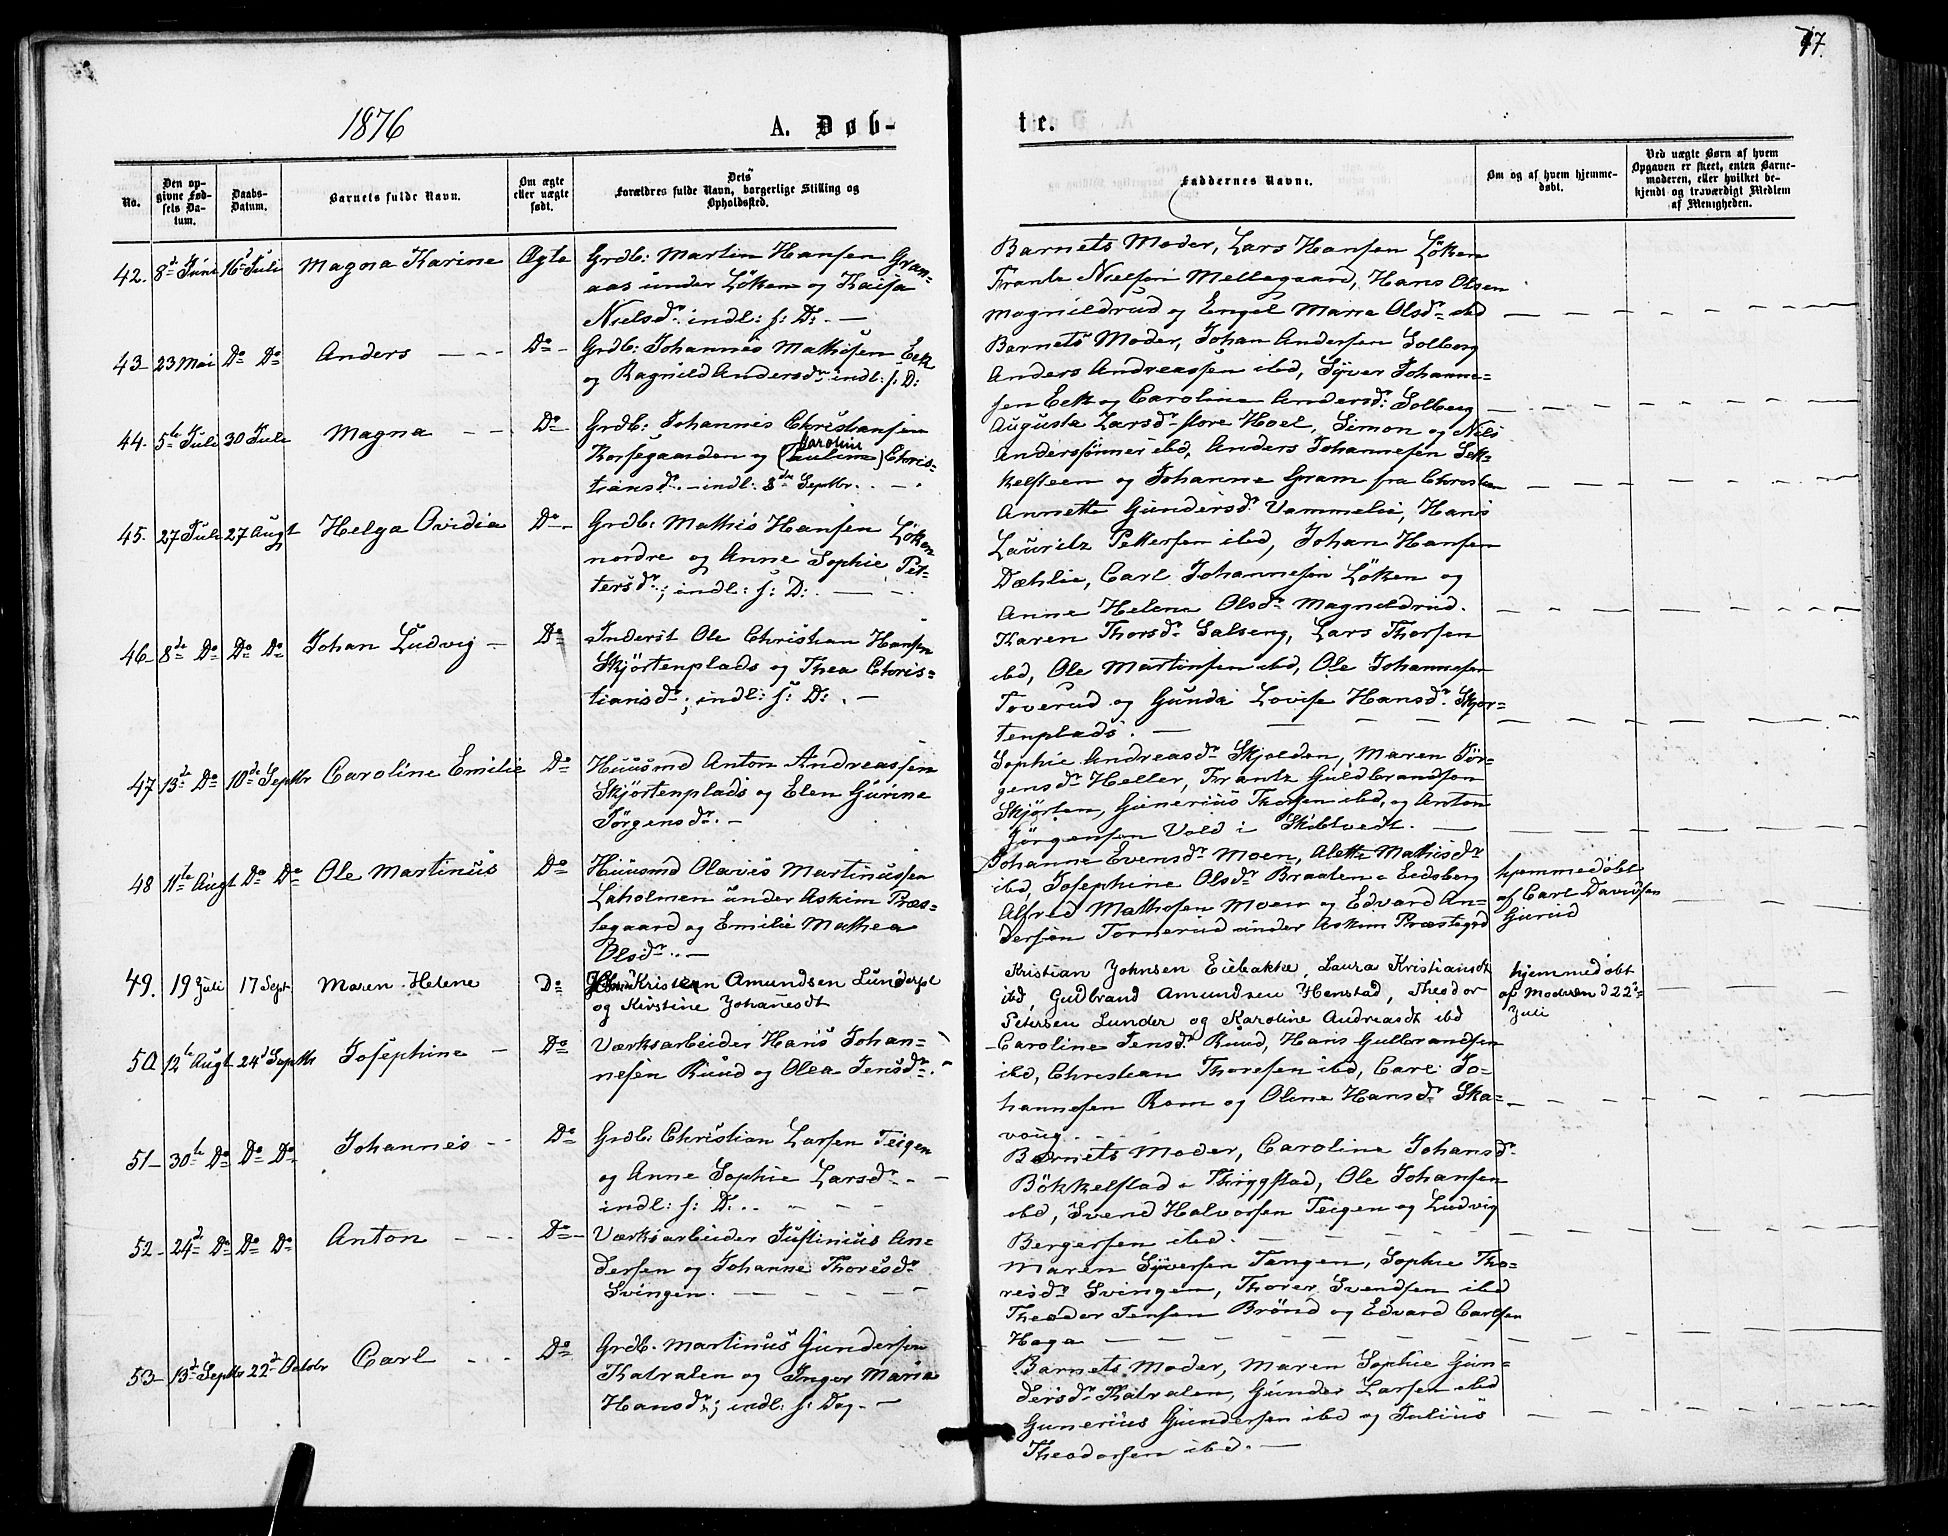 77.
1876
A. Døb-
te.
No.
Den op-
givne Fød-
sels Da-
tum.
Daabs-
Datum.
Barnets fulde Navn.
Om ægte
eller uægte
født.
Dets
Forældres fulde Navn, borgerlige Stilling og
Opholdssted.
Faddernes Navne.
Om og af hvem hjemme-
døbt.
Ved uægte Børn af hvem
Opgaven er skeet, enten Barne-
moderen, eller hvilket be-
kjendt og troværdigt Medlem
af Menigheden.
42. 8de Juni 16de Juli Magna Karine Ægte Grdb: Martin Hansen Gran-
aas under Löken og Kaisa
Nielsdr. indl: s: D: —
Barnets Moder, Lars Hansen Löken
Frantz Nielsen Mellegaard, Hans Olsen
Magnildrud og Engel Marie Olsdr ibd
43 23 Mai Do Do Anders Do Grdb: Johannes Mathisen Eek
og Ragnild Andersdr. indl: s: D:
Barnets Moder, Johan Andersen Solberg
Anders Andreassen ibd, Syver Johanne-
sen Eek og Caroline Andersdr. Solberg
44. 5te Juli 30 Juli Magna Do Grdb: Johannes Christiansen
Korsegaarden og (Pauline) Chris-
Karoline
tiansdr. - indl: 8de Septbr.
Auguste Larsdr store Hoel, Simon og Nils
Anderssønner ibd, Anders Johannesen Sek-
kelsteen og Johanne Gram fra Christian
45. 27 Juli 27 Augt Helga Ovidia Do Grdb: Mathis Hansen Löken
nordre og Anne Sophie Pet-
tersdr.; indl: s: D:
Annette Gundersdr Vammelie, Hans
Lauritz Pettersen ibd, Johan Hansen
Dæhlie, Carl Johannesen Löken og
Anne Helene Olsdr Magnildrud.
46 8de Do Do Do Johan Ludvig Do Inderst Ole Christian Hansen
Skjörtenplads og Thea Chris-
tiansdr; indl: s: D:
Karen Thorsdr. Salseng, Lars Thorsen
ibd, Ole Martinsen ibd, Ole Johannesen
Toverud og Gunda Lovise Hansdr. Skjör-
tenplads.
47 13de Do 10de Septbr Caroline Emilie Do Huusmd Anton Andreassen
Skjörtenplads og Elen Gurine
Jørgensdr.
Sophie Andreasdr Skjolden, Maren Jør-
gensdr Heller, Frantz Guldbrandsen
Skjörten, Gunerius Thorsen ibd, og Anton
Jörgensen Vold i Skibtvedt.
48 11te Augt Do Do Ole Martinus Do Huusmd Olavus Martinussen
Laholmen under Askim Præs-
tegaard og Emilie Mathea
Olsdr.
Johanne Evensdr Moen, Alette Mathisdr
ibd, Josephine Olsdr Braaten i Eidsberg
Alfred Mathesen Moen og Edvard An-
dersen Tornerud under Askim Præstegrd
hjemmedøbt
af Carl Davidsen
Gurud
49. 19 Juli 17 Sept Maren Helene Do Kristian Amundsen Lunderpl
og Kirstine Johannesdt
Kristian Johnsen Eiebakke, Laura Kristiansdt
ibd, Gudbrand Amundsen Henstad, Theodor
Petersen Lunder og Karoline Andreasdt ibd
hjemmedøbt
af Moderen d 22
Juli
50 12te Augt 24de Septbr Josephine Do Værksarbeider Hans Johan-
nesen Ruud og Olea Jensdr.
Caroline Jensdr Ruud, Hans Gulbrandsen
ibd, Christian Thoresen ibd, Carl Jo-
hannesen Rom og Oline Hansdr. Ska-
voug.
51 30te Do Do Do Johannes Do Grdb: Christian Larsen Teigen
og Anne Sophie Larsdr.
indl: s: D:
Barnets Moder, Caroline Johansdr
Bökkelstad i Thrygstad, Ole Johansen
ibd, Svend Halvorsen Teigen og Ludvig
Bergersen ibd.
52 24de Do Do Do Anton Do Værksarbeider Justinius An-
dersen og Johanne Thoresdr
Svingen.
Maren Syversen Tangen, Sophie Tho-
resdr Svingen, Thorer Svendsen ibd
Theodor Jensen Brönd og Edvard Carlsen
Haga
53 13de Septbr 22de Octobr Carl Do Grdb. Martinus Gundersen
Katralen og Inger Maria
Hansdr.; indl: s: Dag.
Barnets Moder, Maren Sophie Gun-
dersdr. Katralen, Gunder Larsen ibd
Gunerius Gundersen ibd og Julius
Theodorsen ibd.